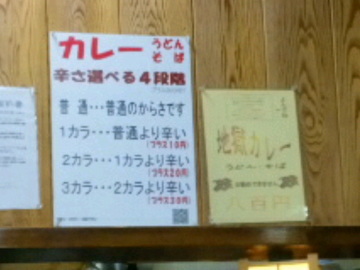 カレー うどん そば
辛さ選べる4段階
普通・・・普通のからさです
1カラ・・・普通より辛い
(プラス10円)
2カラ・・・1カラより辛い
(プラス20円)
3カラ・・・2カラより辛い
(プラス30円)
地獄カレー
うどん・そば
八百円